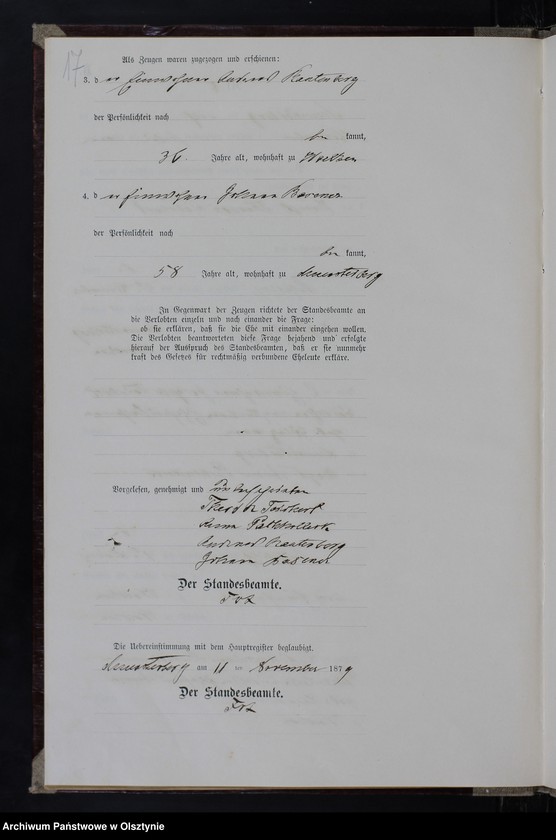 17
Als Zeugen waren zugezogen und erschienen:
3. der Einwohner Andreas Rautenberg
der Persönlichkeit nach
be kannt,
36 Jahre alt, wohnhaft zu
4. der Einwohner Johann
der Persönlichkeit nach
be kannt,
58 Jahre alt, wohnhaft zu
In Gegenwart der Zeugen richtete der Standesbeamte an
die Verlobten einzeln und nach einander die Frage:
ob sie erklären, daß sie die Ehe mit einander eingehen wollen.
Die Verlobten beantworteten diese Frage bejahend und erfolgte
hierauf der Ausspruch des Standesbeamten, daß er sie nunmehr
kraft des Gesetzes für rechtmäßig verbundene Eheleute erkläre.
Vorgelesen, genehmigt und unterschrieben
Anna
Andreas Rautenberg
Johann
Der Standesbeamte.
Die Uebereinstimmung mit dem Hauptregister beglaubigt.
am 11 ten November 1879
Der Standesbeamte.
Archiwum Państwowe w Olsztynie